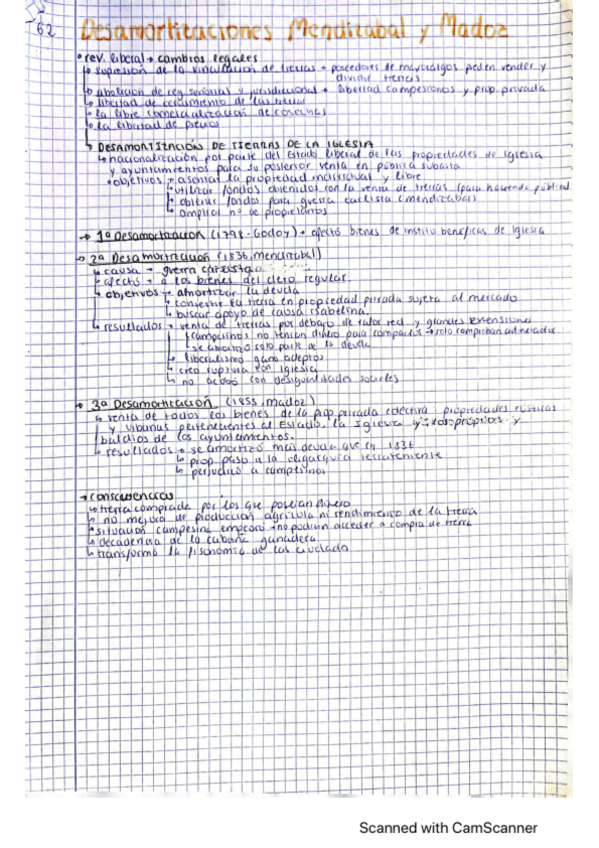 62 Desamortizaciones Mendizabal y Madoz
• rev. liberal → cambios legales
↳ supresión de la vinculación de tierras → poseedores de mayorazgos pueden vender y
dividir tierras
↳ abolición de reg. señorial y jurisdiccional → libertad campesinos y prop. privada
↳ libertad de cerramiento de las tierras
↳ la libre comercialización de cosechas
↳ la libertad de precios
↳ DESAMORTIZACIÓN DE TIERRAS DE LA IGLESIA
↳ nacionalización por parte del Estado liberal de las propiedades de Iglesia
y ayuntamientos para su posterior venta en pública subasta
• objetivos → asentar la propiedad individual y libre
↳ utilizar fondos obtenidos con la venta de tierras (para hacienda pública)
↳ obtener fondos para guerra carlista (mendizabal)
↳ ampliar nº de propietarios
→ 1º Desamortización (1798 - Godoy) → afectó bienes de institu beneficas de Iglesia
→ 2º Desamortización (1836, mendizabal)
↳ causa → guerra carlista
↳ afectó → a los bienes del clero regular.
↳ objetivos → amortizar la deuda
↳ convertir la tierra en propiedad privada sujeta al mercado
↳ buscar apoyo de causa isabelina.
↳ resultados → venta de tierras por debajo de valor real y grandes extensiones
↳ campesinos no tenían dinero para comprarlos → solo compraban
↳ se amortizó solo parte de la deuda
↳ liberalismo ganó adeptos
↳ creo ruptura con Iglesia
↳ no acabó con desigualdades sociales
→ 3º Desamortización (1855, madoz)
↳ venta de todos los bienes de la prop. privada colectiva: propiedades rústicas
y urbanas pertenecientes al Estado, la Iglesia y los propios y
baldíos de los ayuntamientos.
↳ resultados → se amortizó más deuda que en 1836
↳ prop. pasó a la oligarquía terrateniente
↳ perjudicó a campesinos
→ consecuencias
↳ tierra comprada por los que poseían dinero
↳ no mejora de producción agrícola ni rendimiento de la tierra
↳ situación campesina empeoró → no podían acceder a compra de tierra
↳ decadencia de la cabaña ganadera
↳ transformó la fisonomía de las ciudades
Scanned with CamScanner